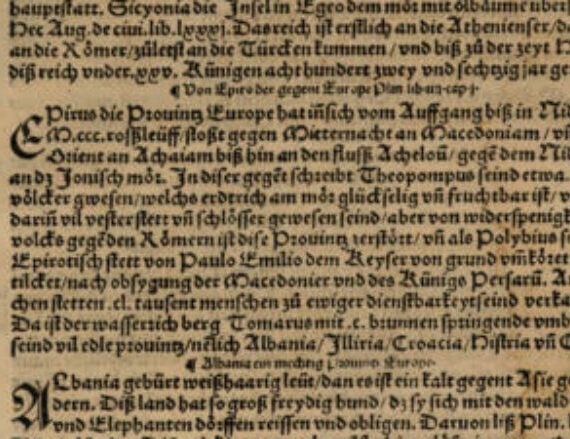 hauptstatt. Sicyonia die Insel in Egeo dem mör mit ölbäume über
Hec Aug. de ciui. lib. lxxxj. Das reich ist erstlich an die Athenienser/da
an die Römer/zůletst an die Türcken kummen/vnd biß zů der zeyt
diß reich vnder.xxv. Künigen acht hundert zwey vnd sechtzig jar ge
¶ Von Epiro der gegent Europe Plin lib
EPirus die Prouintz Europe hat iñ sich vom Auffgang biß in Nid
M.ccc.roßleüff/stoßt gegen Mitternacht an Macedoniam/vñ
Orient an Achaiam biß hin an den fluß Acheloũ/gegẽ dem Nid
an dz Jonisch mör. In diser gegẽt schreibt Theopompus seind etwa.
völcker gewesen/welchs erdtrich am mör glückselig vñ fruchtbar ist/v
dariñ vil vester stett vñ schlösser gewesen seind/aber von widerspenigk
volcks gegẽ den Römern ist dise Prouintz zerstört/vñ als Polybius s
Epirotisch stett von Paulo Emilio dem Keyser von grund vmkõret
tilcket/nach obsygung der Macedonier vnd des Künigs Persarũ. A
chen stetten.cl. tausent menschen zů ewiger dienstbarkeyt seind verka
Da ist der wasserrich berg Tomarus mit.c. brunnen springende vmb
seind vil edle prouintz/nẽlich Albania/Illiria/Croacia/Histria vñ C
¶ Albania ein mechtig Prouintz Europe.
ALbania gebürt weißhaarig leüt/dan es ist ein kalt gegent Asie g
dern. Diß land hat so groß freydig hund/dz sy sich mit den wald
vnd Elephanten dörffen reissen vnd obligen. Daruon liß Plin. l